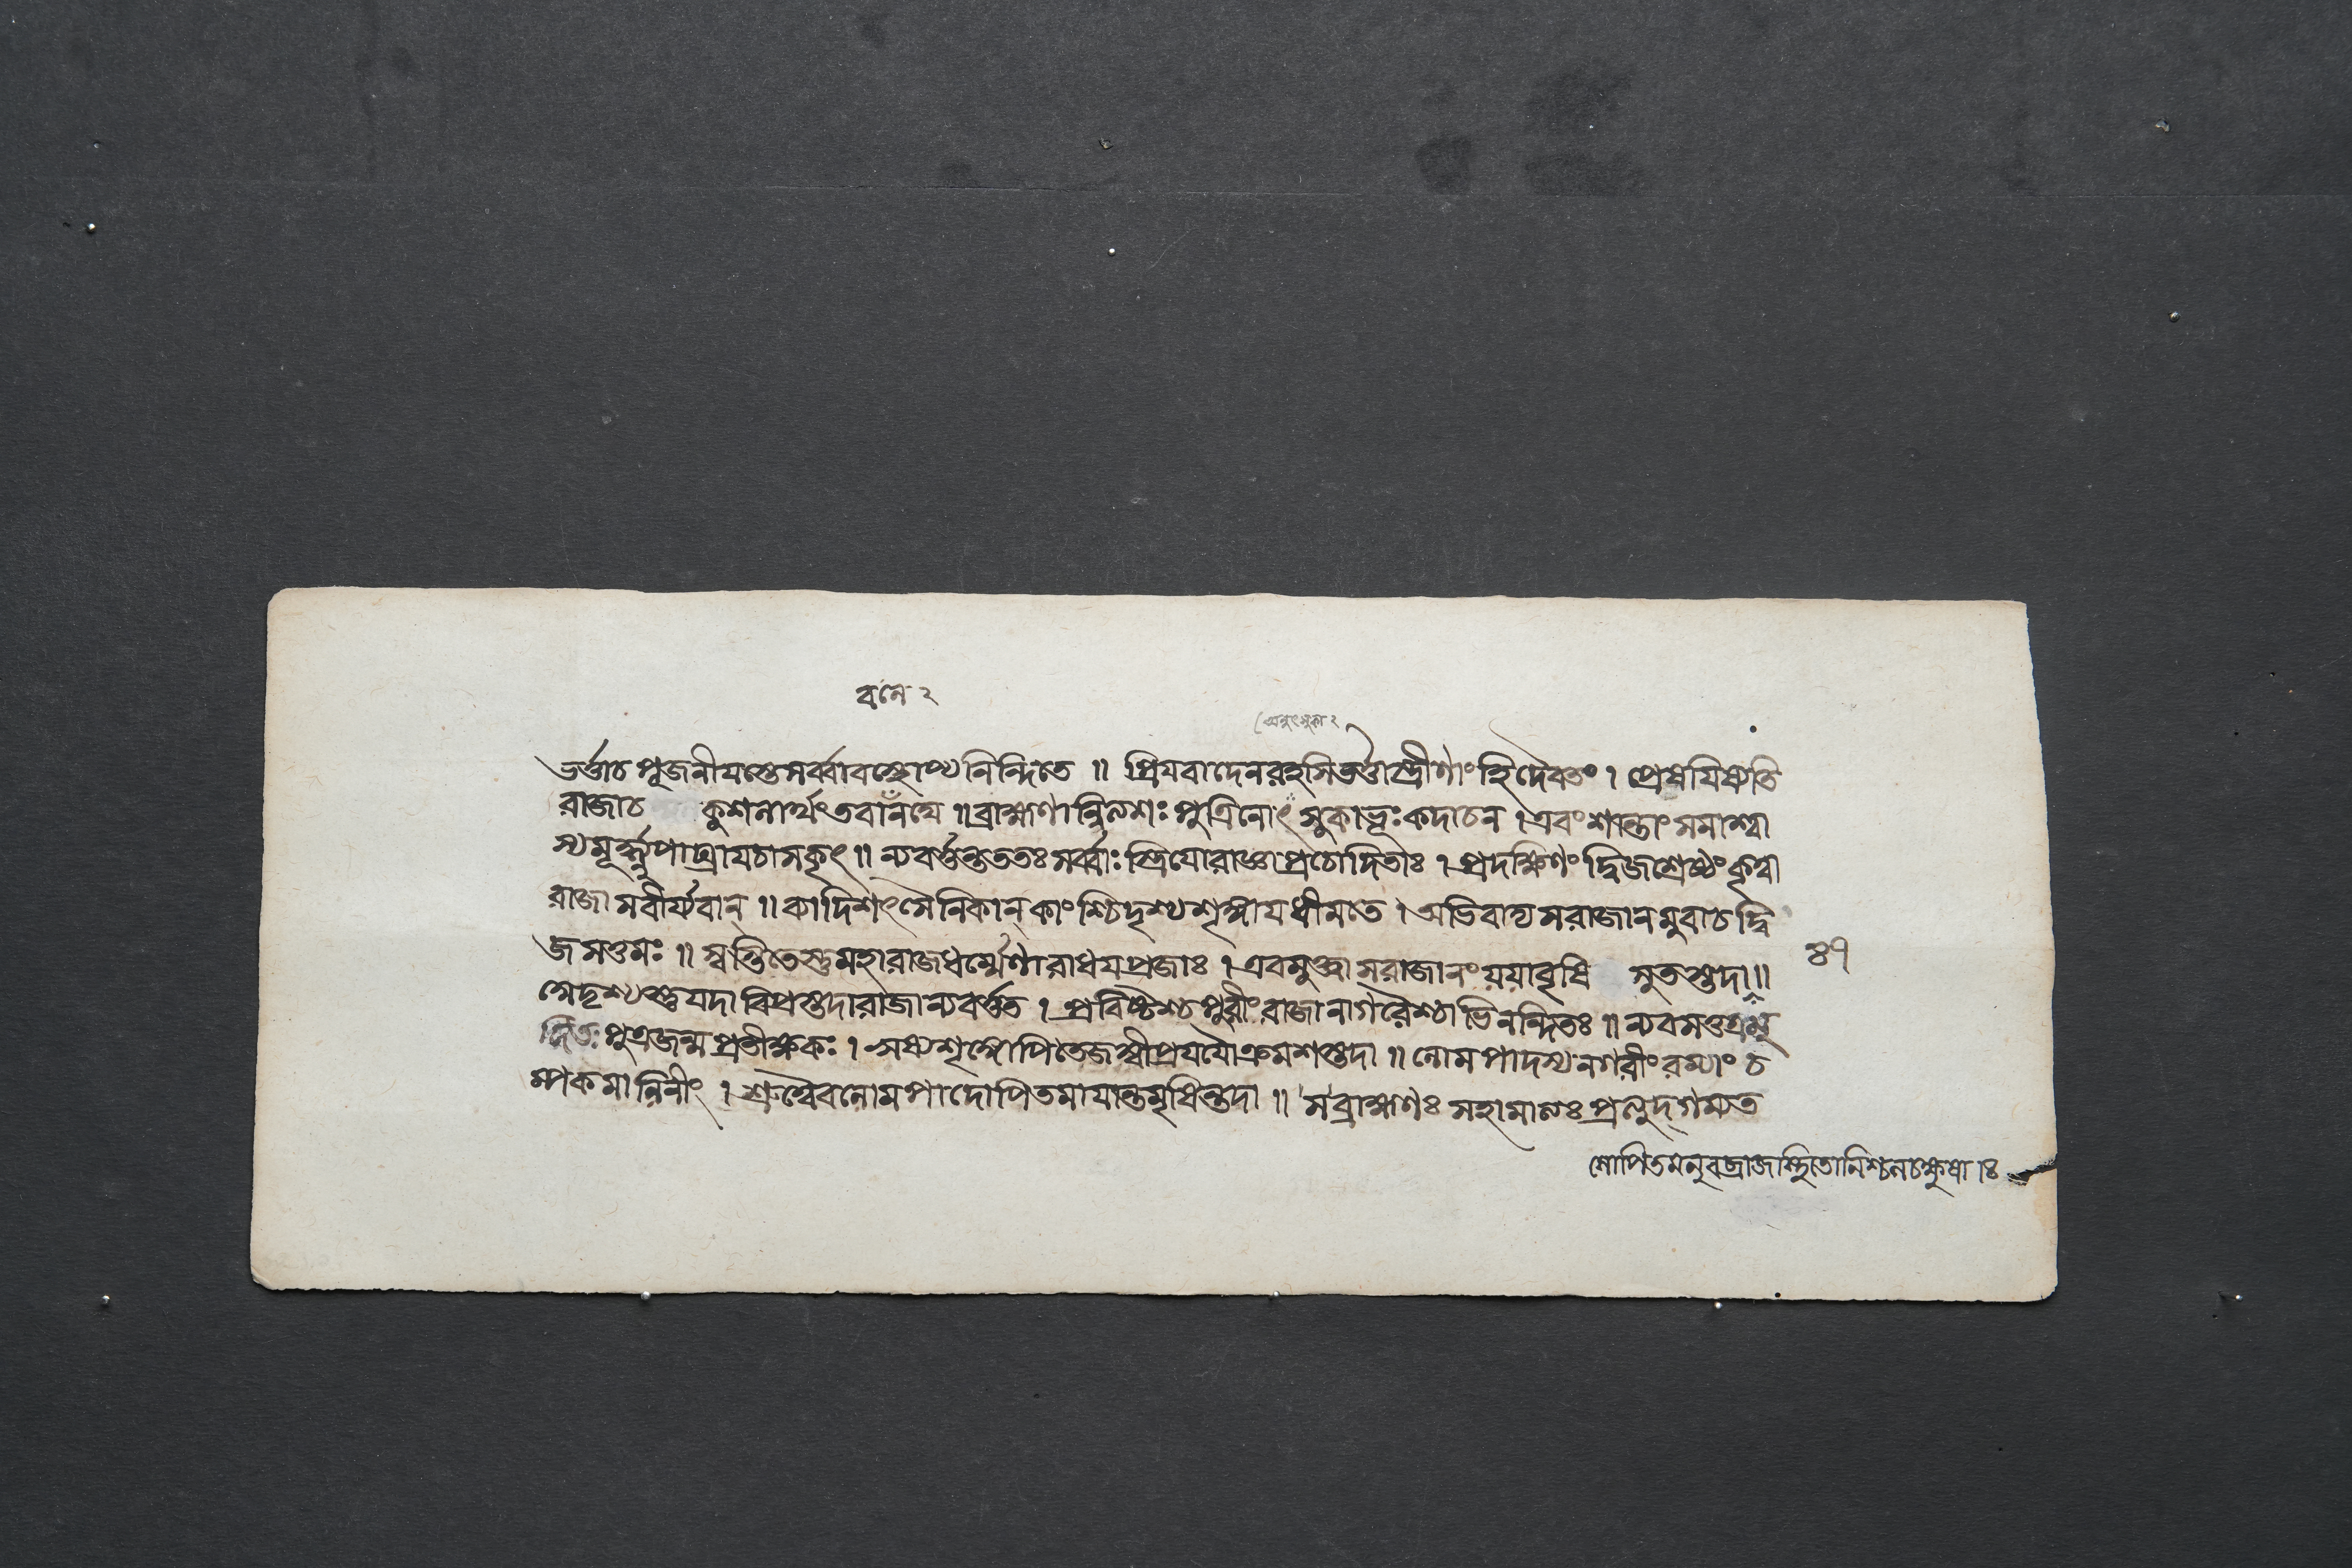 বনে ২
ভর্ত্তাচ পূজনীযস্তেসর্ব্বাবস্থোপ্যনিন্দিতে ॥ প্রিযবাদেনরহসিভর্ত্তাস্ত্রীণাং হিদৈবতং । প্রেষযিষ্যতি
রাজাচ কুশলার্থং তবানঘে ॥ ব্রাহ্মণা পুত্রি সুকাভূঃ কদাচন । এবং শান্তাং সমাশ্বা
স্যমূর্দ্ধ্ন্যুপাঘ্রাযচাসকৃৎ ॥ ন্যবর্ত্তন্তততঃ সর্ব্বাঃ স্ত্রিযোরাজ্ঞাপ্রচোদিতাঃ । প্রদক্ষিণং দ্বিজশ্রেষ্ঠং কৃত্বা
রাজা সবীর্য্যবান্ ॥ কাদিশৎ সৈনিকান্ কাংশ্চিদৃশ্যশৃঙ্গাযধীমতে । অভিবাদ্য সরাজানমুবাচ দ্বি
জসত্তমঃ ॥ স্বস্তিতেস্তুমহারাজধর্ম্মেণারাধযপ্রজাঃ । এবমুক্ত্বা সরাজানং যযাবৃষি সুতস্তদা ॥
৪৭
নেদৃশ্যস্তুযদা বিপ্রস্তদারাজান্যবর্ত্তত । প্রবিষ্টশ্চ পুরীং রাজা নাগরৈশ্চাভিনন্দিতঃ ॥ ন্যবসত্তত্রমু
দিতঃ পুত্রজন্ম প্রতীক্ষকঃ । ঋষ্যশৃঙ্গোপিতেজস্বীপ্রযযৌক্রমশস্তদা ॥ লোমপাদস্য নগরীং রম্যাং চ
ম্পকমালিনীং । শ্রুত্বৈবলোমপাদোপিতমাযান্তমৃষিন্তদা ॥ সব্রাহ্মণঃ সহামাত্যঃ প্রত্যুদ্গম্যত